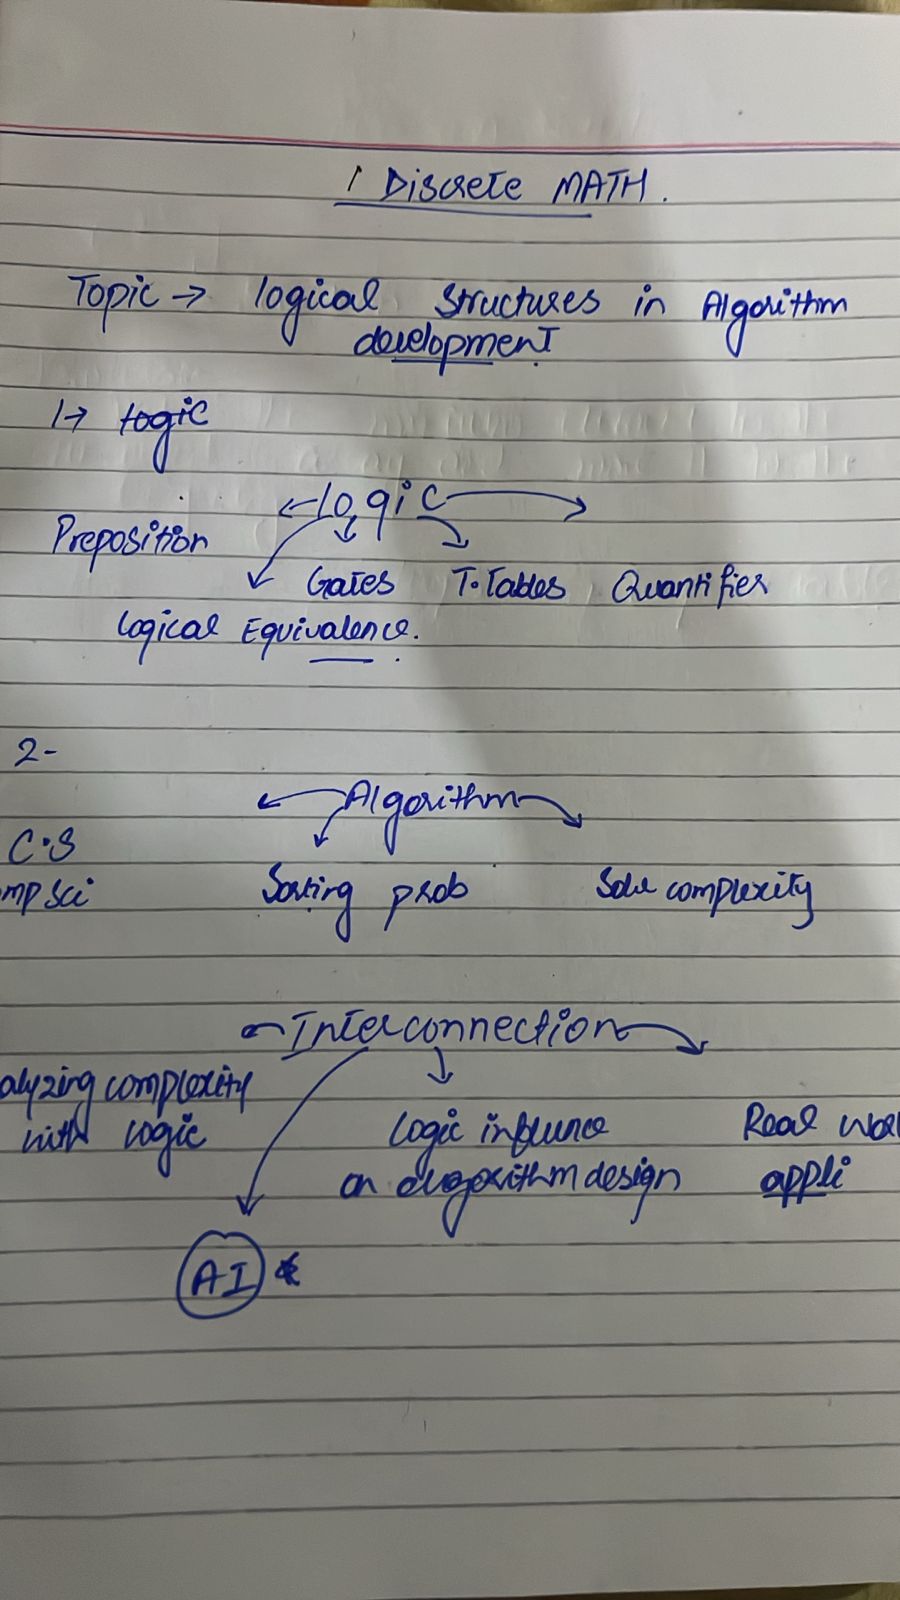 1 Discrete MATH.
Topic → logical structures in Algorithm
development.
1→ logic
logic
Preposition
Gates T.Tables Quantifier
logical Equivalence.
2-
Algorithm
C.S
mp sci Sorting prob Solve complexity
Interconnection
alyzing complexity
with logic Logic influnce Real wor
on algorithm design appli
AI *